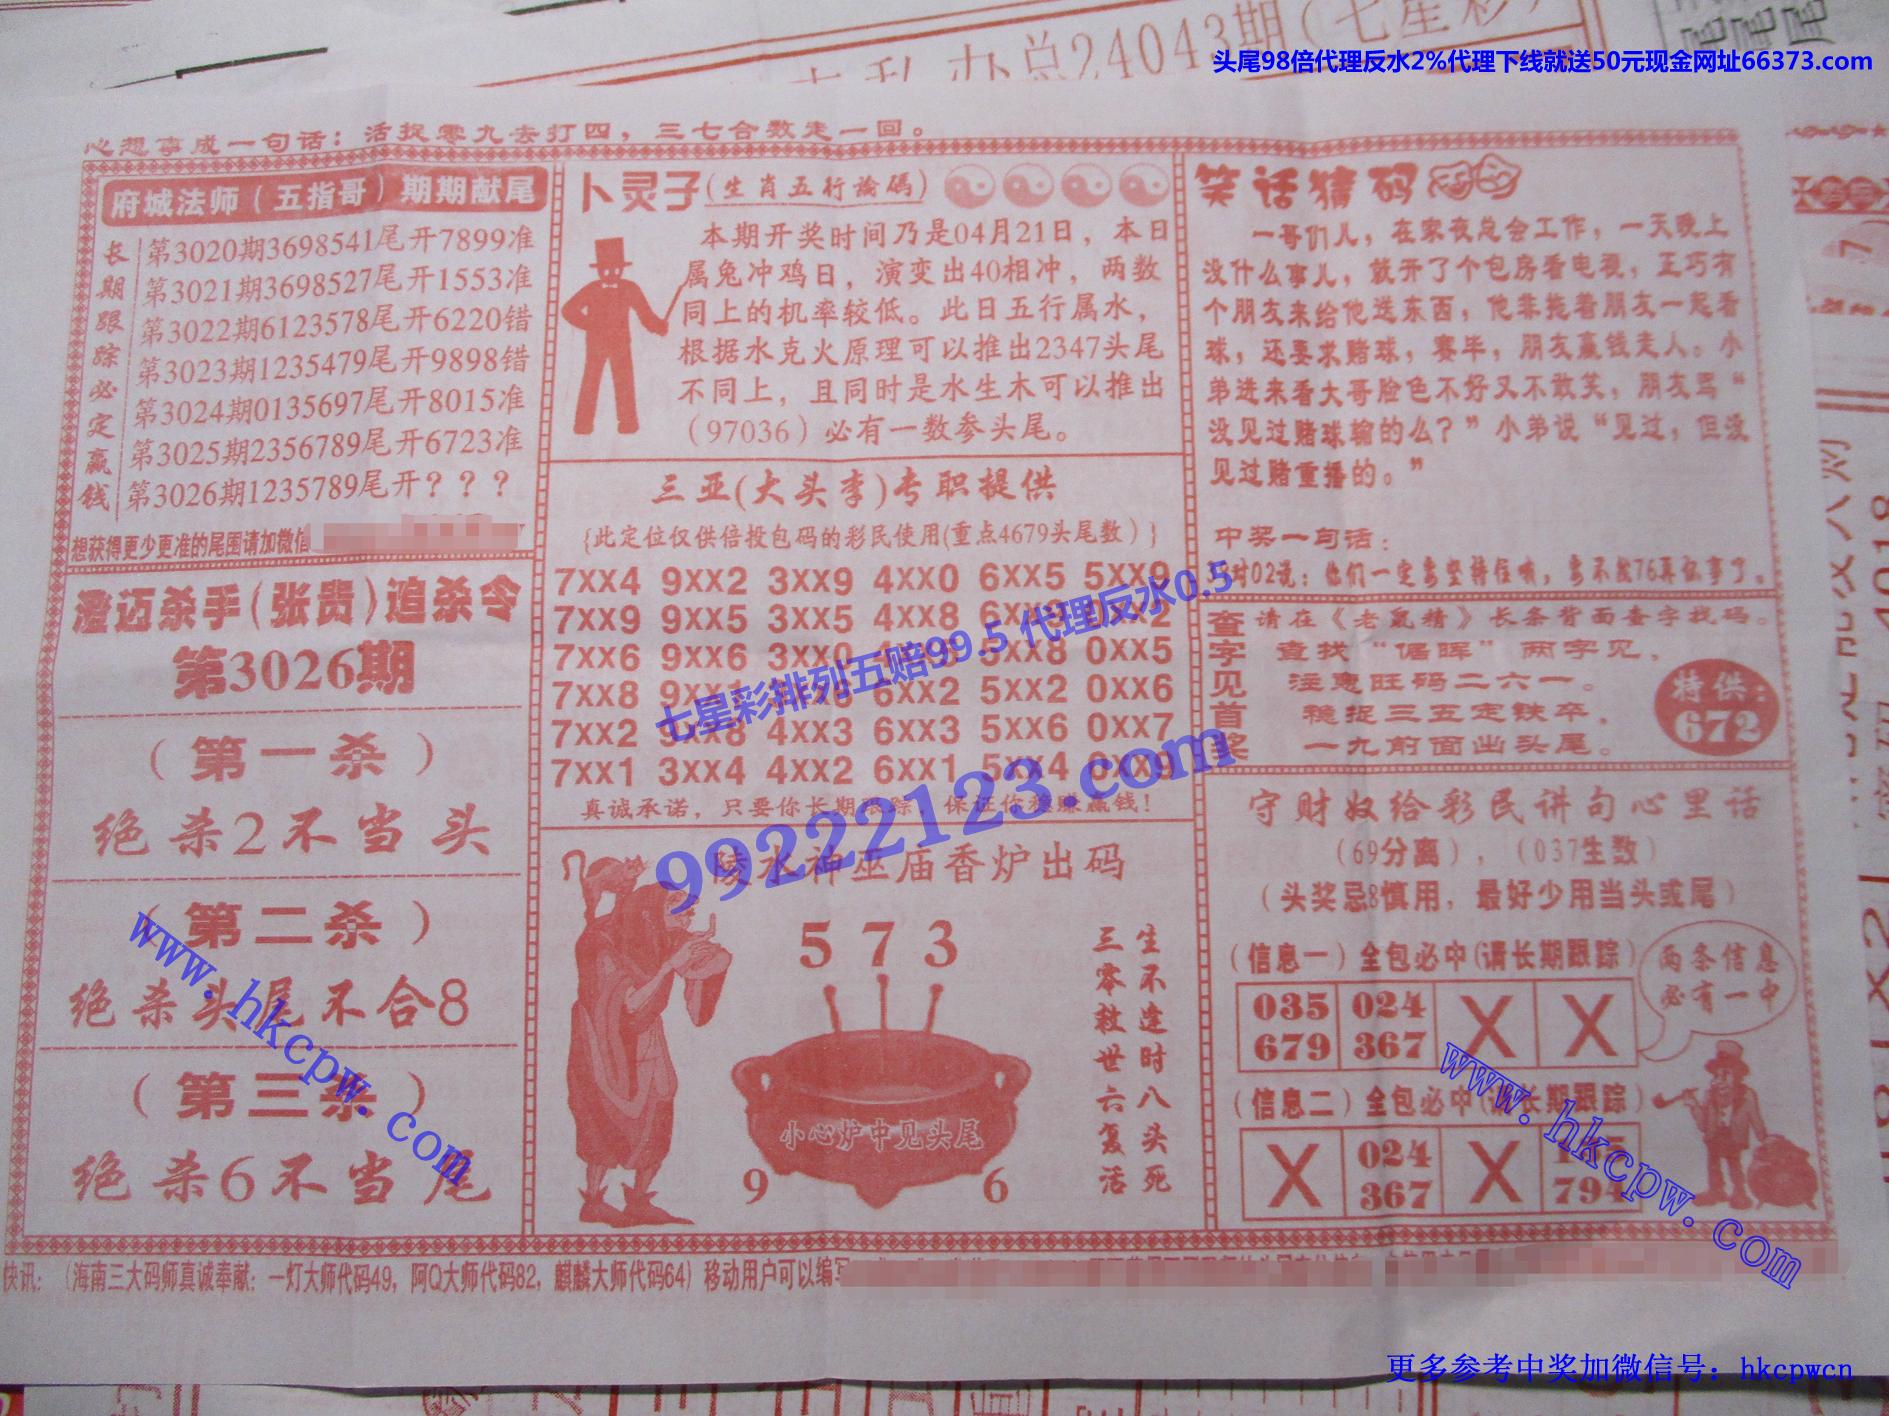 七星彩
办总24043期(七星彩)
头尾98倍代理反水2%代理下线就送50元现金网址66373.com
心想事成一句话：活捉零九去打四，三七合数走一回。
府城法师（五指哥）期期献尾
长期跟踪必定赢钱
第3020期3698541尾开7899准
第3021期3698527尾开1553准
第3022期6123578尾开6220错
第3023期1235479尾开9898错
第3024期0135697尾开8015准
第3025期2356789尾开6723准
第3026期1235789尾开？？？
想获得更少更准的尾围请加微信
澄迈杀手(张贵)追杀令
第3026期
（第一杀）
绝杀2不当头
（第二杀）
绝杀头尾不合8
（第三杀）
绝杀6不当尾
卜灵子(生肖五行论码)
本期开奖时间乃是04月21日，本日
属兔冲鸡日，演变出40相冲，两数
同上的机率较低。此日五行属水，
根据水克火原理可以推出2347头尾
不同上，且同时是水生木可以推出
（97036）必有一数参头尾。
三亚(大头李)专职提供
{此定位仅供倍投包码的彩民使用(重点4679头尾数）}
7XX4 9XX2 3XX9 4XX0 6XX5 5XX9
7XX9 9XX5 3XX5 4XX8 6XX9 0XX2
7XX6 9XX6 3XX0 5XX8 0XX5
7XX8 9XX1 6XX2 5XX2 0XX6
7XX2 9XX8 4XX3 6XX3 5XX6 0XX7
7XX1 3XX4 4XX2 6XX1 5XX4 0XX9
真诚承诺，只要你长期跟踪，保证你稳赚赢钱！
七星彩排列五赔99.5 代理反水0.5
99222123.com
陵水神巫庙香炉出码
5 7 3
生不逢时八头死
三零救世六复活
小心炉中见头尾
9 6
笑话猜码
一哥们儿，在家夜总会工作，一天晚上
没什么事儿，就开了个包房看电视，正巧有
个朋友来给他送东西，他非拖着朋友一起看
球，还要求赌球，赛毕，朋友赢钱走人。小
弟进来看大哥脸色不好又不敢笑，朋友骂“
没见过赌球输的么？”小弟说“见过，但没
见过赌重播的。”
中奖一句话：
对02说：他们一定要坚持住哦，要不就76再做事了。
查字见首奖
请在《老鼠精》长条背面查字找码。
查找“倔晖”两字见，
注意旺码二六一。
稳捉三五定铁卒，
一九前面出头尾。
特供：
672
守财奴给彩民讲句心里话
（69分离），（037生数）
（头奖忌8慎用，最好少用当头或尾）
（信息一）全包必中(请长期跟踪)
035 024 X X
679 367
两条信息
必有一中
（信息二）全包必中(请长期跟踪)
X 024 X
367 794
www.hkcpw.com
www.hkcpw.com
快讯：（海南三大码师真诚奉献：一灯大师代码49，阿Q大师代码82，麒麟大师代码64）移动用户可以编写
更多参考中奖加微信号：hkcpwcn